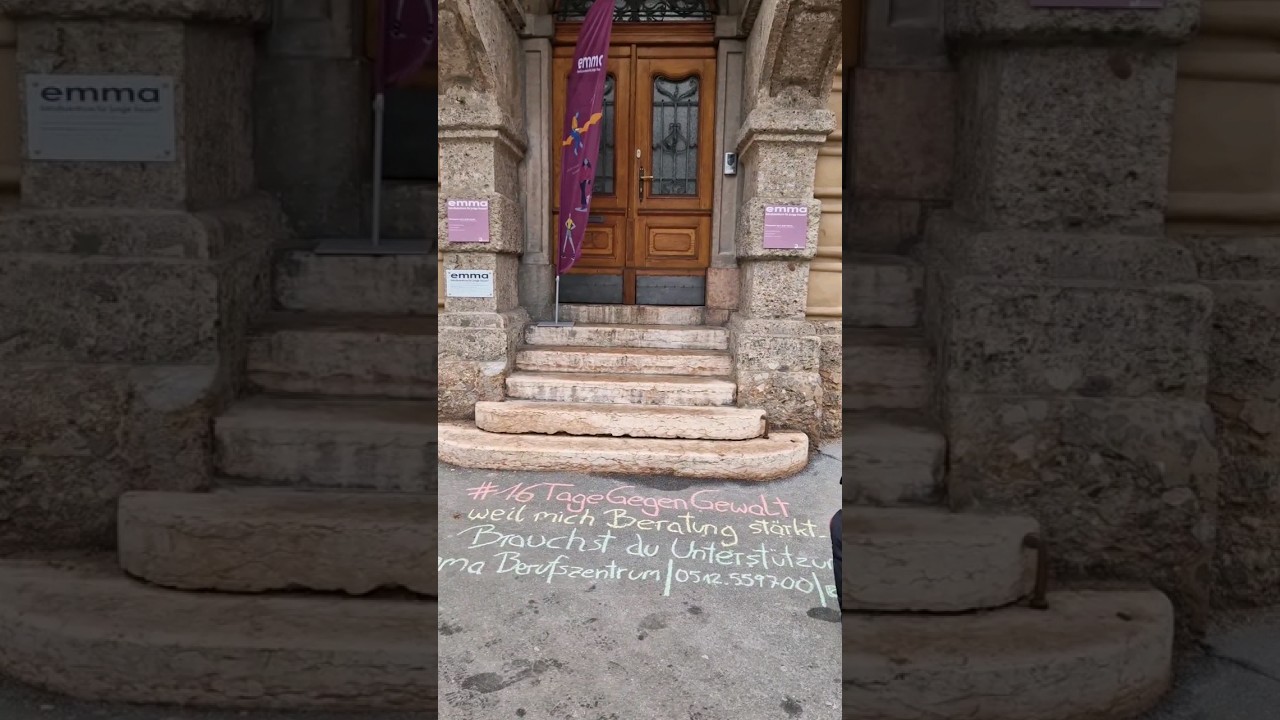 emma
emma
emma
emma
emma
#16TageGegenGewalt
weil mich Beratung stärkt-
Brauchst du Unterstützu
ma Berufszentrum/0512.559700/